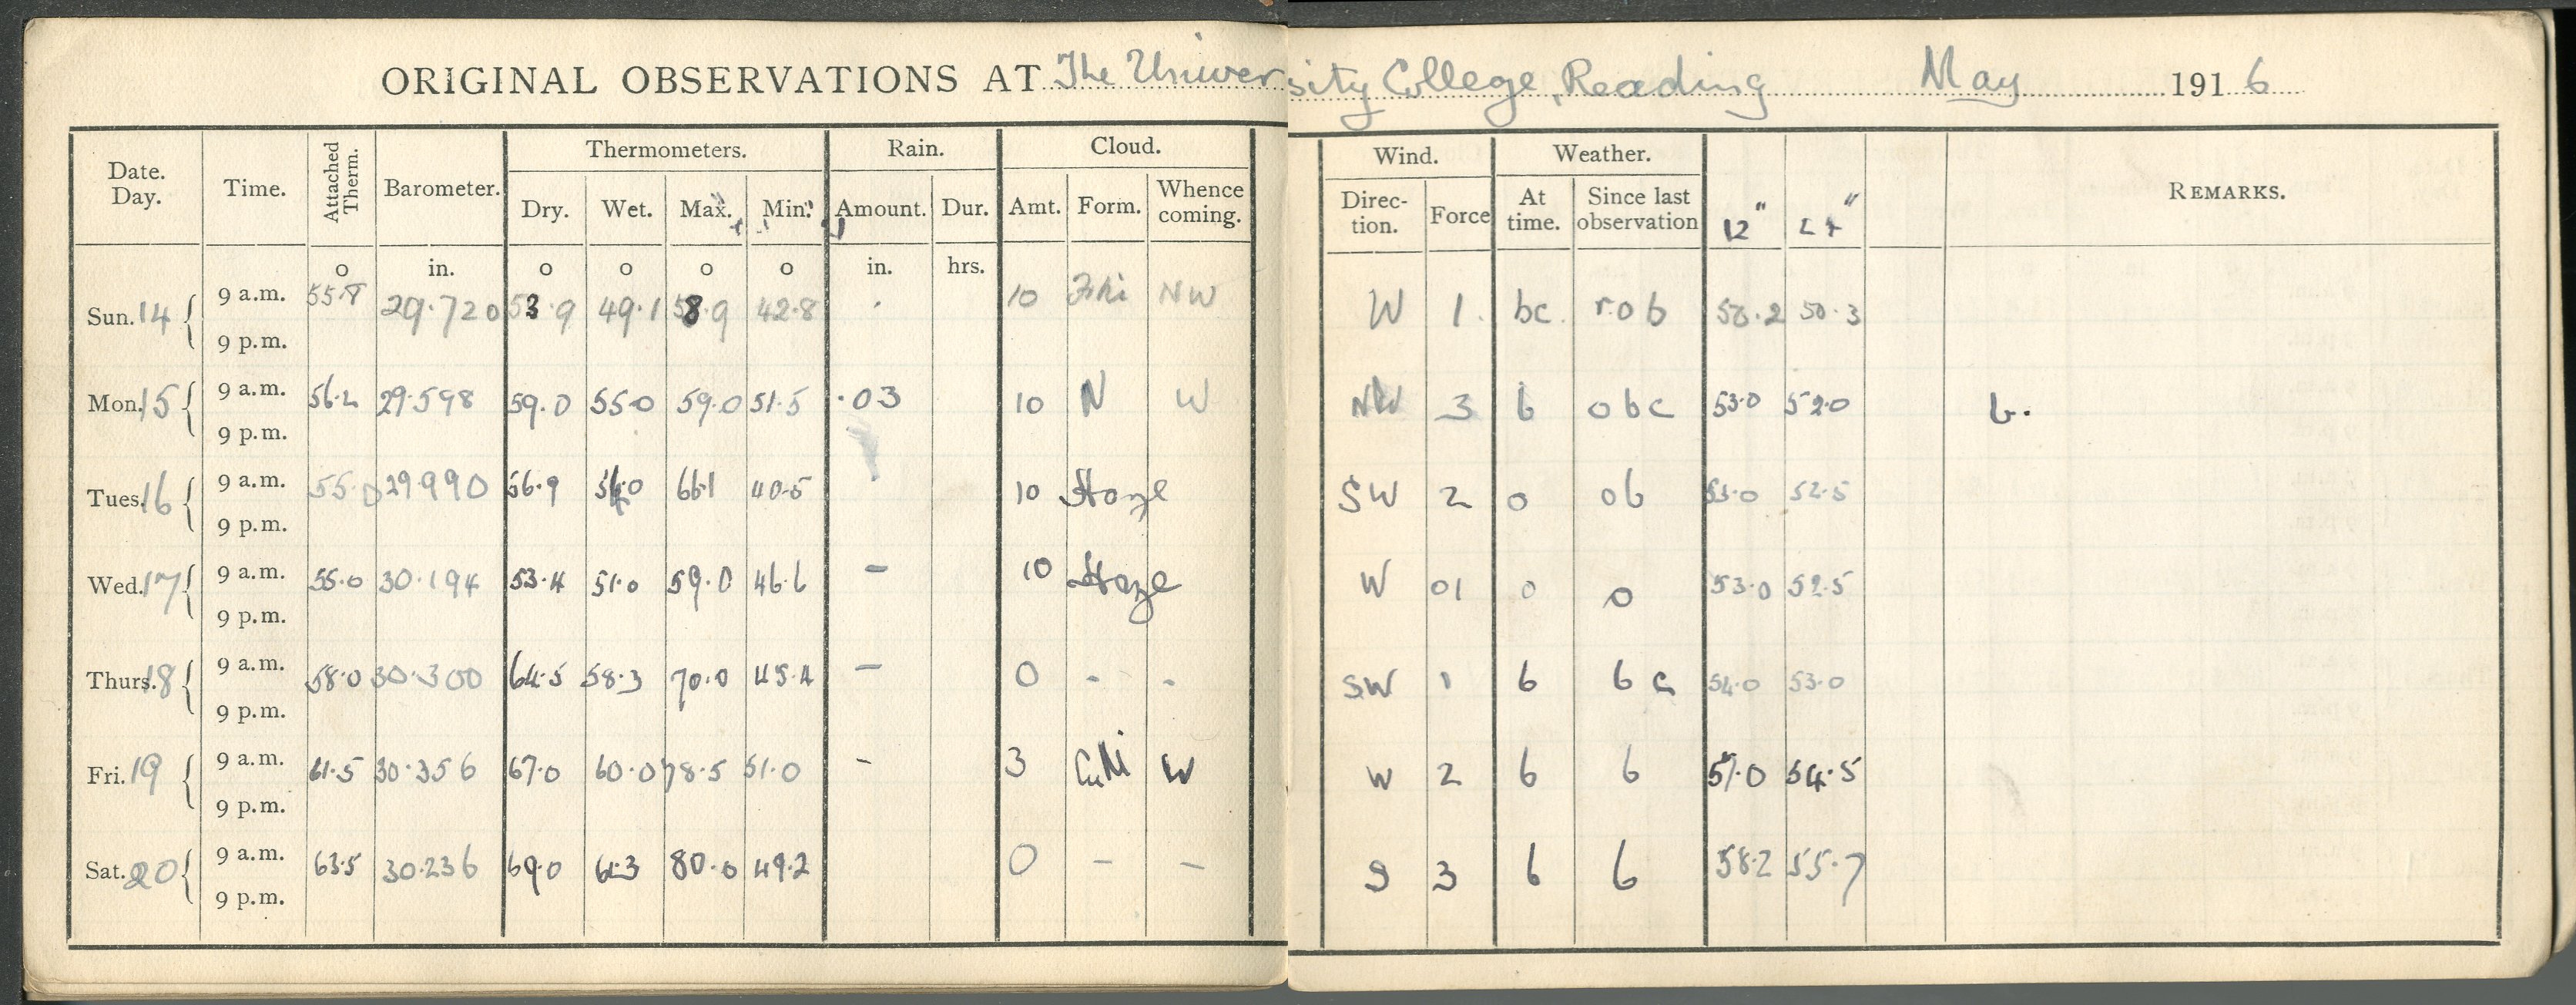 ORIGINAL OBSERVATIONS AT The University College, Reading May 1916
Date. Day. Time. Attached Therm. Barometer. Thermometers. Rain. Cloud. Wind. Weather. REMARKS.
Dry. Wet. Max. Min. Amount. Dur. Amt. Form. Whence coming. Direc- tion. Force At time. Since last observation 12" 24"
o in. o o o o in. hrs.
Sun. 14 9 a.m. 55.8 29.720 53.9 49.1 58.9 42.8 . 10 NW W 1. bc. r o b 50.2 50.3
9 p.m.
Mon. 15 9 a.m. 56.2 29.598 59.0 55.0 59.0 51.5 .03 10 N W NW 3 b o b c 53.0 52.0 b.
9 p.m.
Tues. 16 9 a.m. 55.0 29.990 56.9 54.0 66.1 40.5 10 Haze SW 2 o o b 53.0 52.5
9 p.m.
Wed. 17 9 a.m. 55.0 30.194 53.4 51.0 59.0 46.6 - 10 Haze W 01 o o 53.0 52.5
9 p.m.
Thurs. 18 9 a.m. 58.0 30.300 64.5 58.3 70.0 45.4 - 0 - - SW 1 b b c 54.0 53.0
9 p.m.
Fri. 19 9 a.m. 61.5 30.356 67.0 60.0 78.5 51.0 - 3 W W 2 b b 57.0 54.5
9 p.m.
Sat. 20 9 a.m. 63.5 30.236 69.0 61.3 80.0 49.2 0 - - S 3 b b 58.2 55.7
9 p.m.